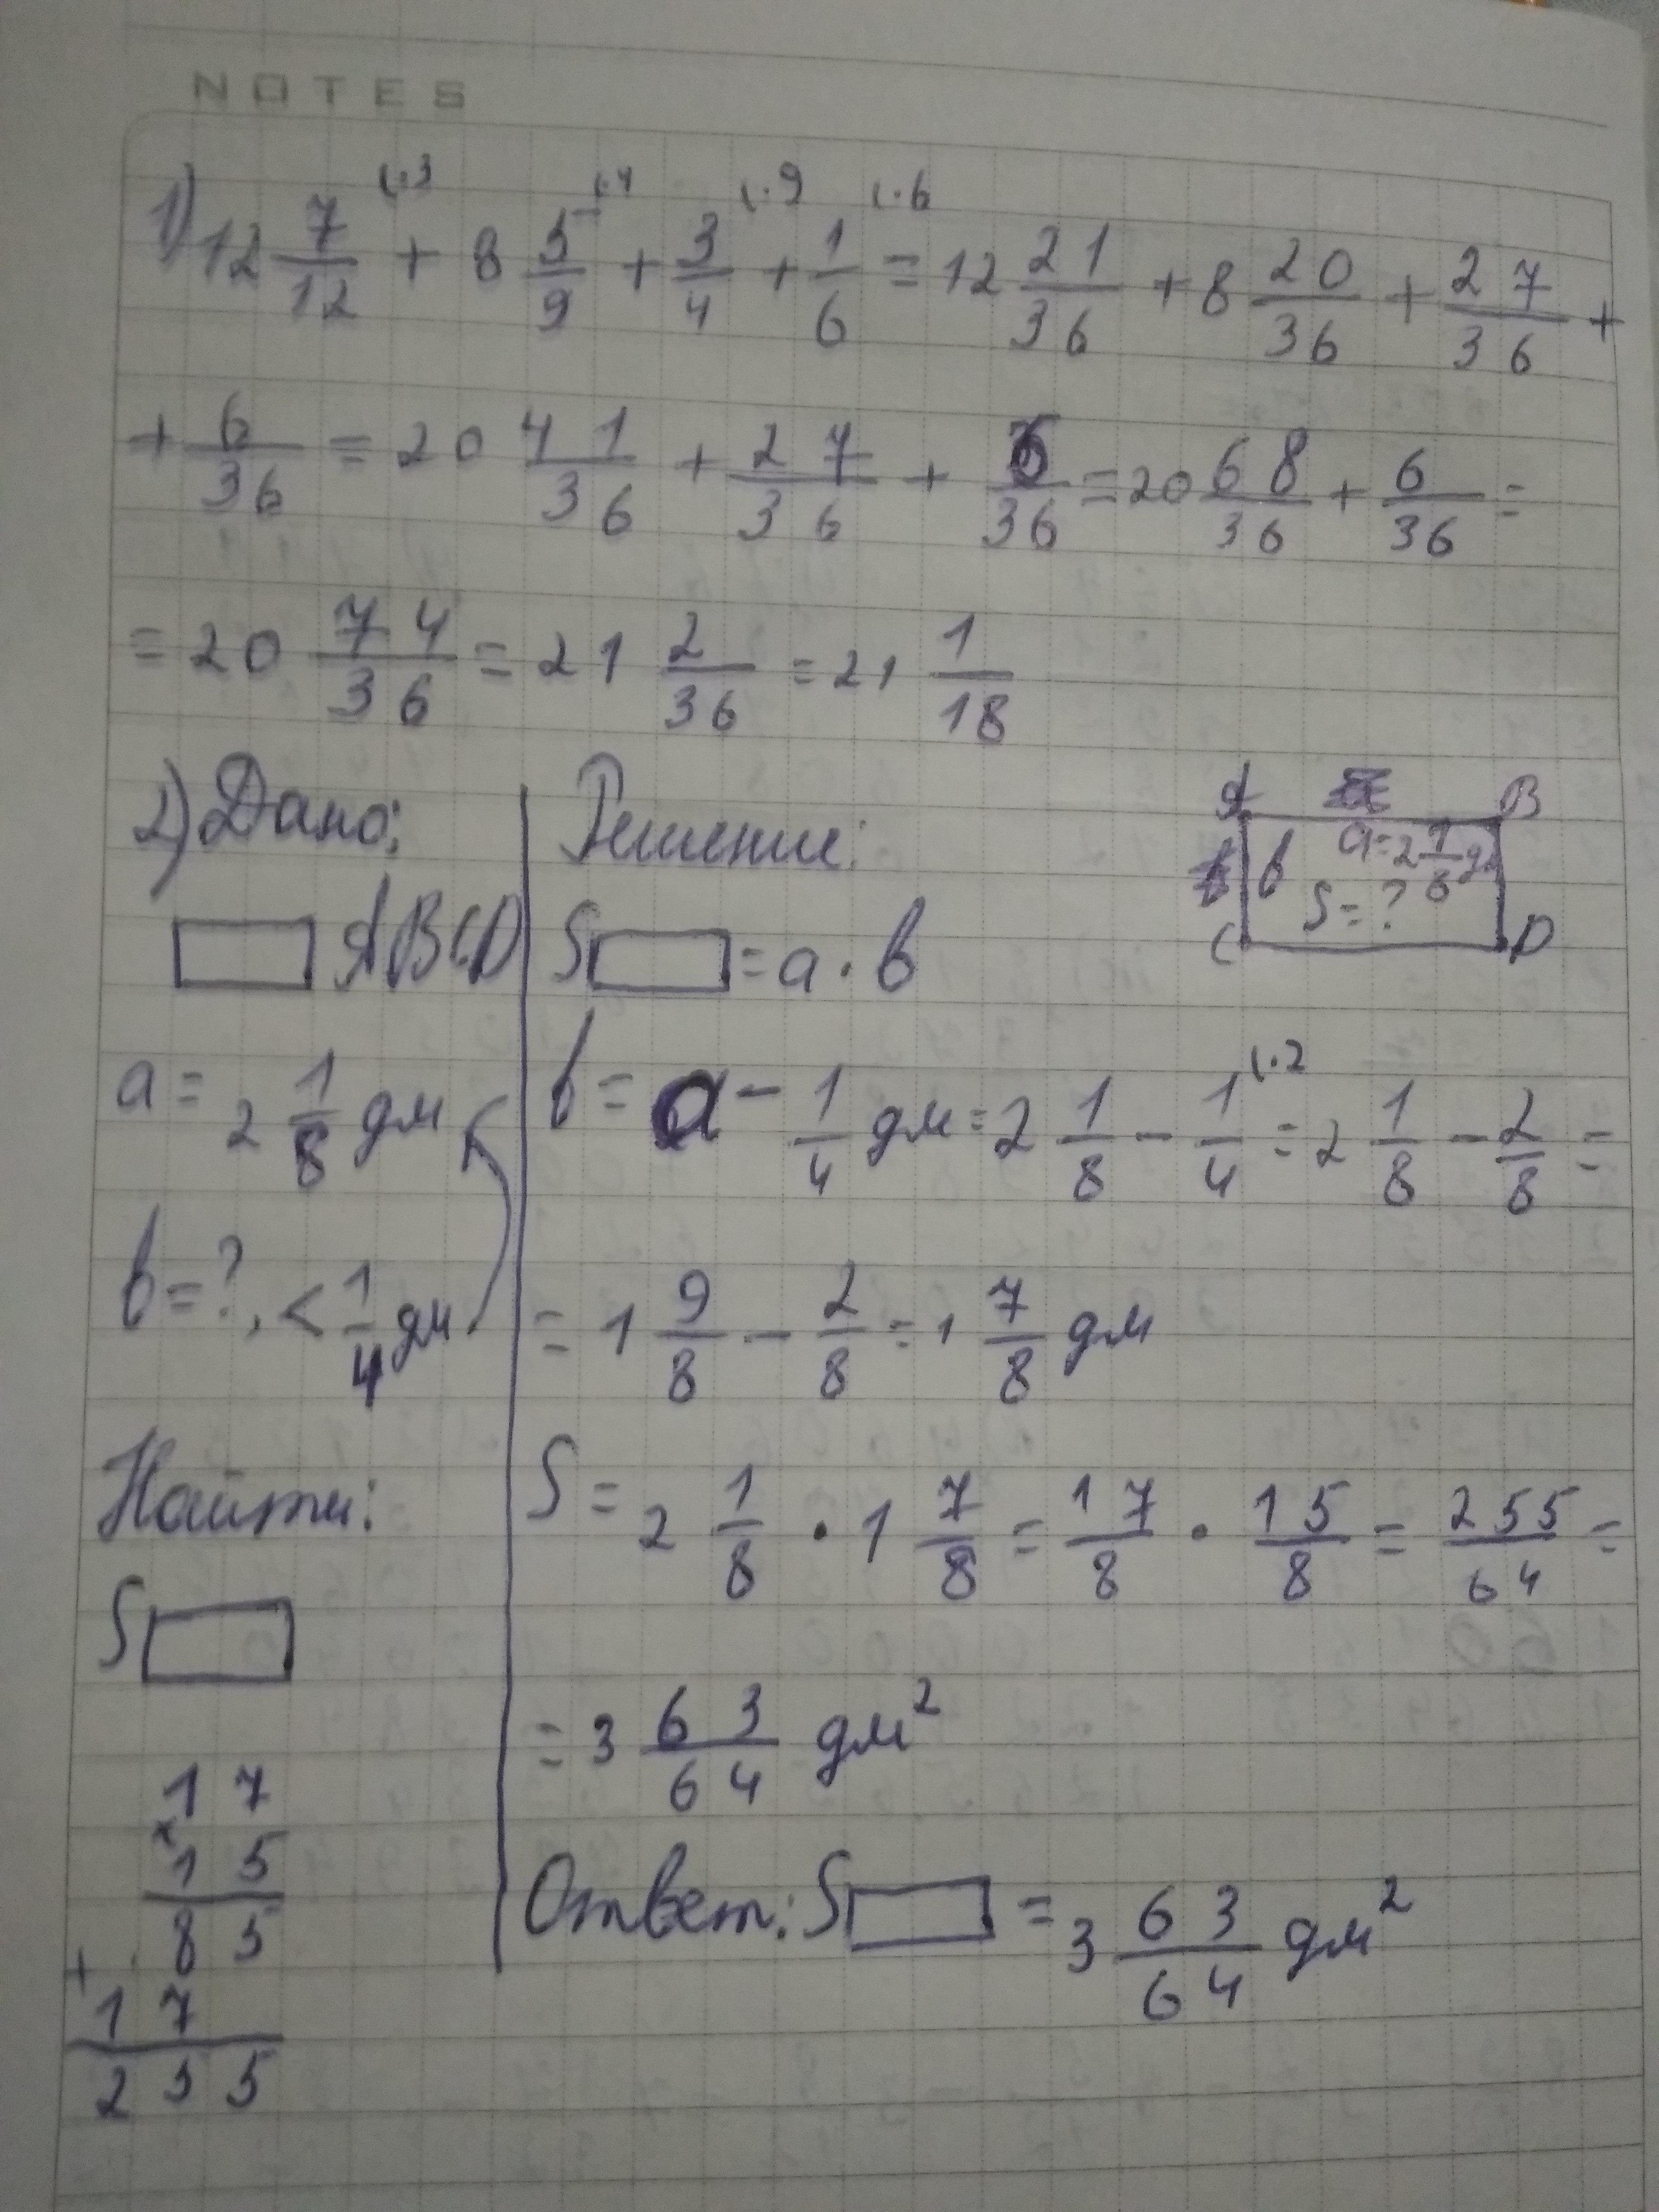 NOTES
1) 12 7/12 (·3 + 8 5/9 (·4 + 3/4 (·9 + 1/6 (·6 = 12 21/36 + 8 20/36 + 27/36 +
+ 6/36 = 20 41/36 + 27/36 + 6/36 = 20 68/36 + 6/36 =
= 20 74/36 = 21 2/36 = 21 1/18
2) Дано:
▭ ABCD
a = 2 1/8 дм
b = ?, < 1/4 дм
Найти:
S▭
17
×
15
85
+
17
255
Решение:
S▭ = a · b
b = a - 1/4 дм = 2 1/8 - 1/4 (·2 = 2 1/8 - 2/8 =
= 1 9/8 - 2/8 = 1 7/8 дм
S = 2 1/8 · 1 7/8 = 17/8 · 15/8 = 255/64 =
= 3 63/64 дм²
Ответ: S▭ = 3 63/64 дм²
A B
a = 2 1/8 дм
b
S = ?
C D